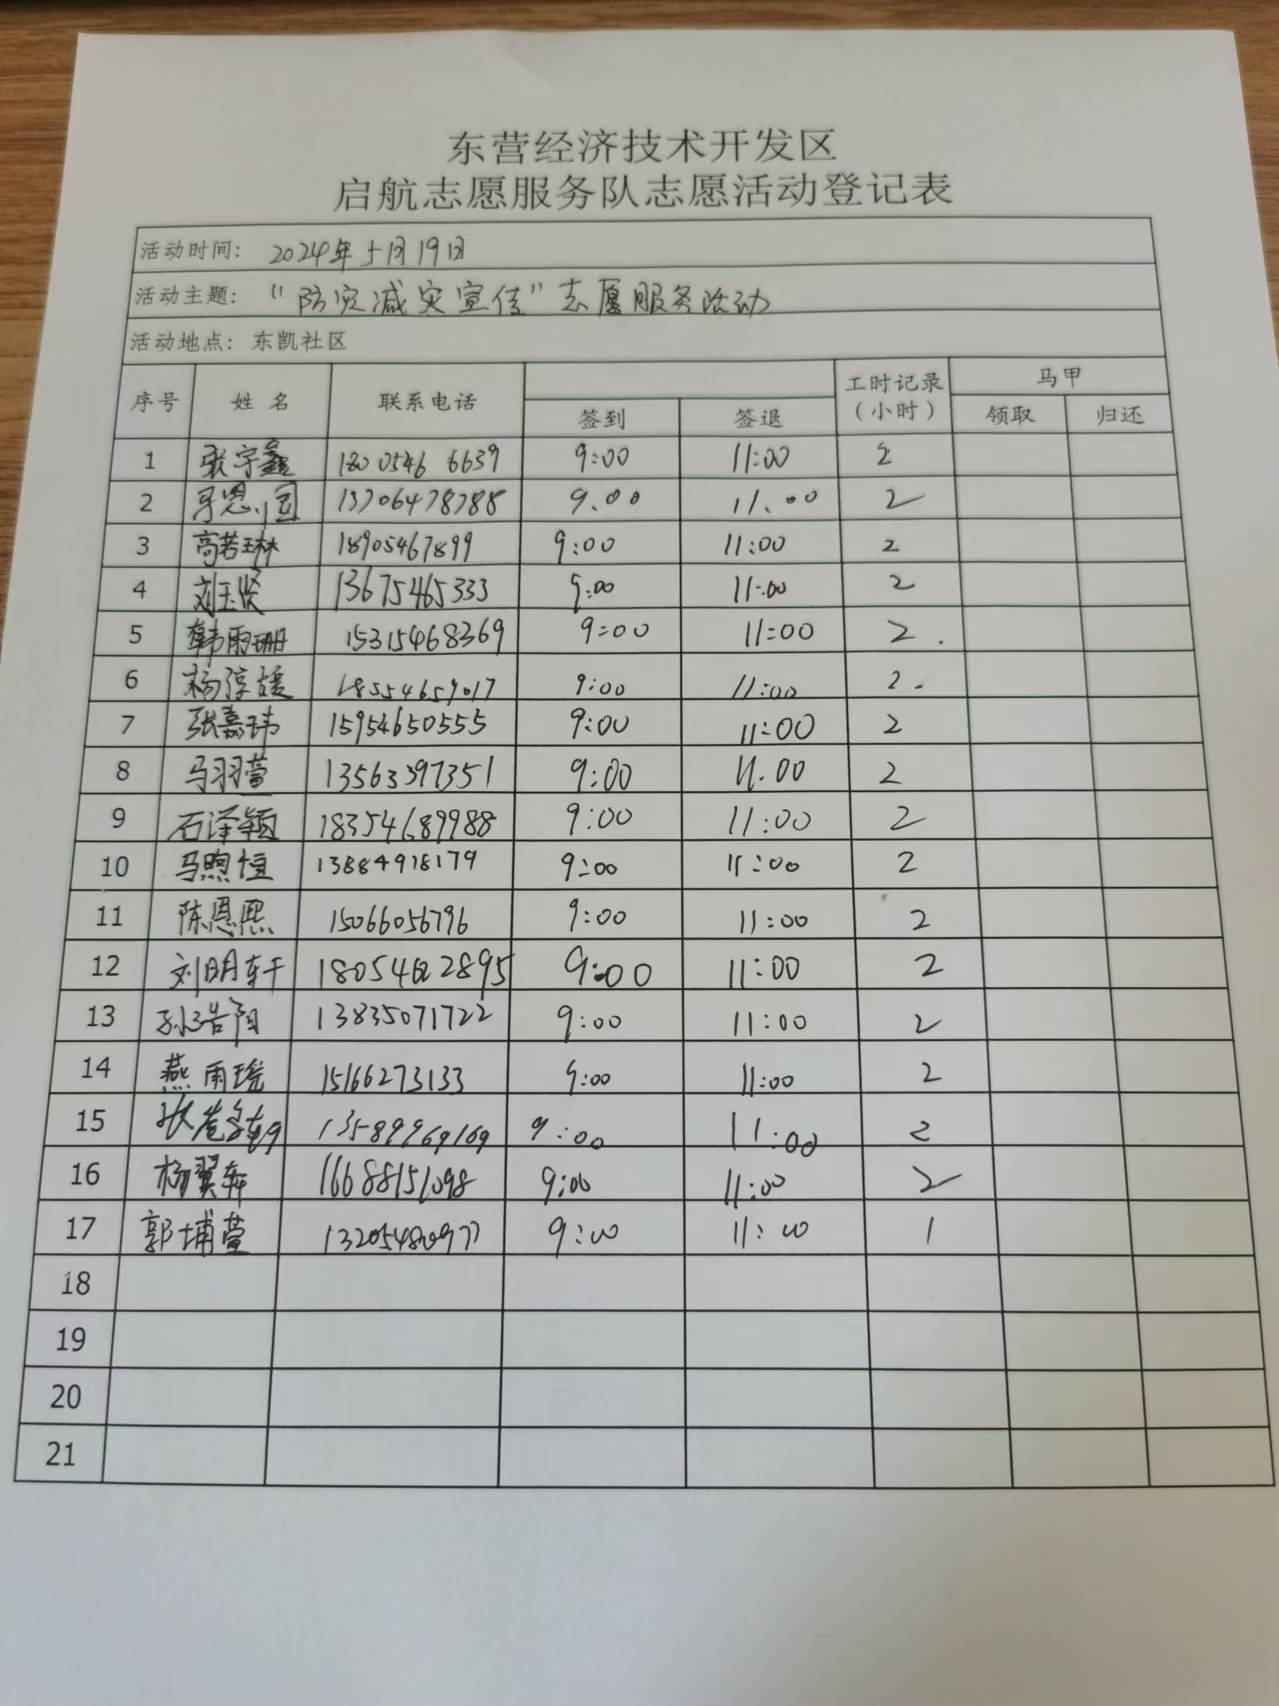 东营经济技术开发区
启航志愿服务队志愿活动登记表
活动时间: 2024年5月19日
活动主题: "防灾减灾宣传"志愿服务活动
活动地点: 东凯社区
序号 姓名 联系电话 签到 签退 工时记录(小时) 马甲 领取 归还
1 张宇鑫 180 0546 6639 9:00 11:00 2
2 13706478788 9.00 11.00 2
3 高若琳 18905467899 9:00 11:00 2
4 刘玉贤 13675465333 9:00 11:00 2
5 韩雨珊 15315468369 9:00 11:00 2.
6 杨淳媛 18554659017 9:00 11:00 2.
7 张嘉玮 15954650555 9:00 11:00 2
8 马羽萱 13563397351 9:00 11.00 2
9 石泽颖 18354689988 9:00 11:00 2
10 马煦恒 13884918179 9:00 11:00 2
11 陈恩熙 15066056796 9:00 11:00 2
12 刘明轩 9:00 11:00 2
13 孙浩阳 13835071722 9:00 11:00 2
14 燕雨瑄 15166273133 9:00 11:00 2
15 13589969169 9:00 11:00 2
16 杨翼奔 16688151098 9:00 11:00 2
17 郭埔萱 13205480977 9:00 11:00 1
18
19
20
21